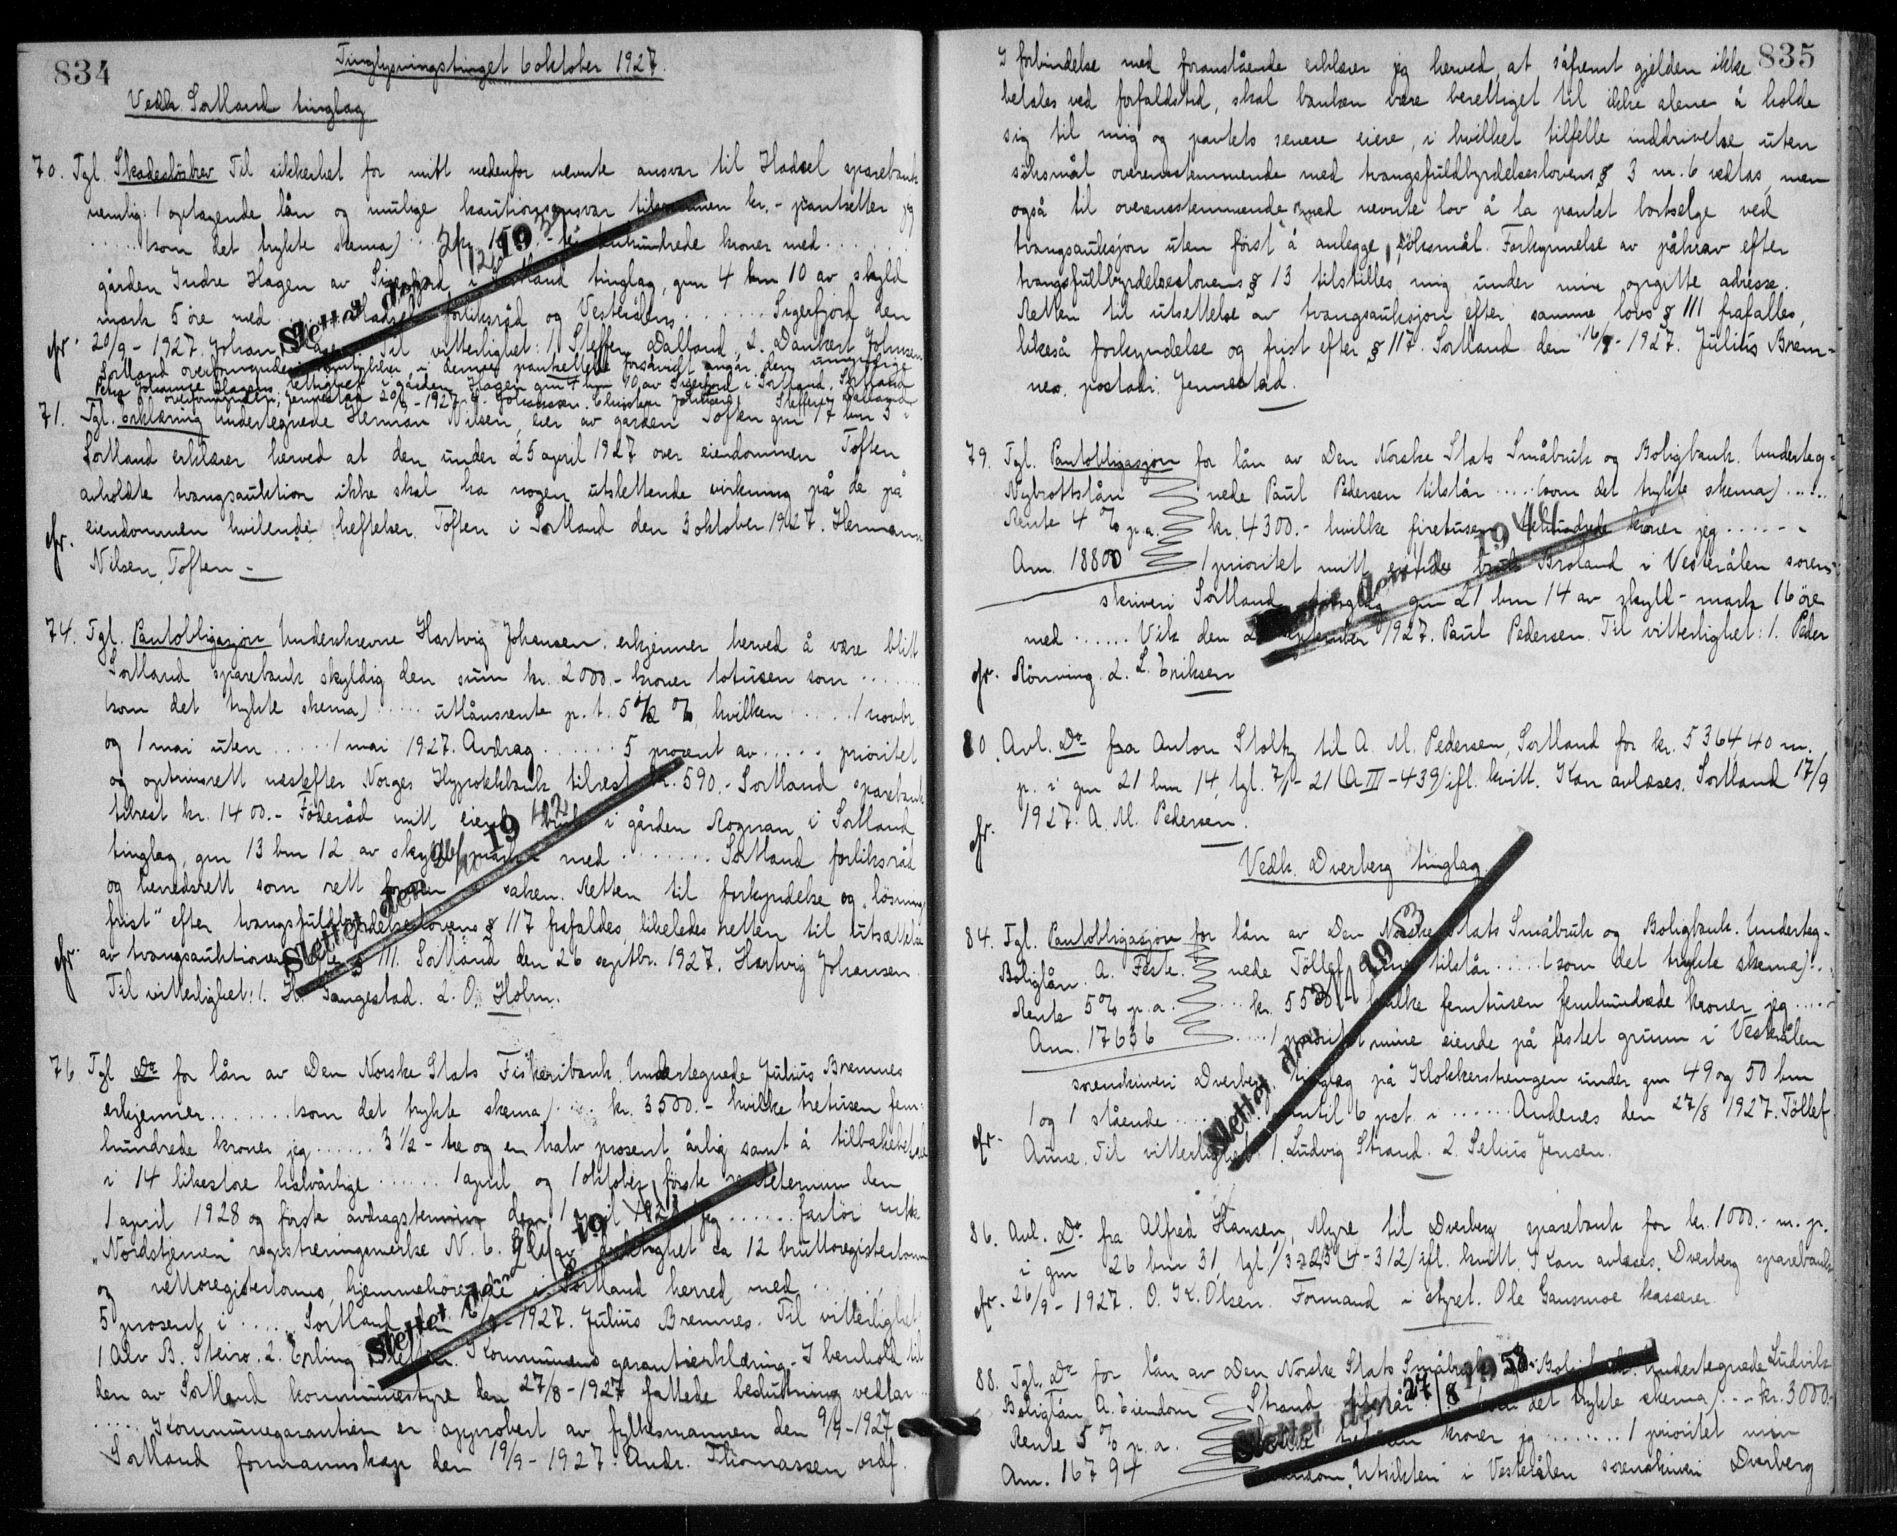 834
Tinglysningstinget 6 oktober 1927.
Vedk. Sortland tinglag
70. Tgl. Skadesløsbrev Til sikkerhet for mitt nedenfor nevnte ansvar til Hadsel sparebank
nemlig: 1 optagende lån og mulige kautionsansvar tilsammen kr. - pantsetter jeg
...... (som det trykte skema) ... kr. kroner med .......
gården Indre Hagen av Sigerfjord i Sortland tinglag, gnr 4 bnr 10 av skyld
mark 5 øre med ...... Hadsel forliksråd og Vesterålens ....... Sigerfjord den
cfr. 20/9 - 1927. Johan Hagen. Til vitterlighet: 1. Steffen Dalland, 2. Dankert Johnsen
Sortland overformynderi samtykker i denne pantsettelse forsåvidt angår den umyndige
Petra Johanne Hagens rettighet i gården Hagen gnr 4 bnr 10 av Sigerfjord i Sortland. Sortland
overformynderi, Jennestad 20/9 - 1927. Steffen Dalland
71. Tgl. Erklæring Undertegnede Herman Nilsen, eier av gården Toften gnr 17 bnr 3 i
Sortland erklærer herved at den under 25 april 1927 over eiendommen Toften
avholdte tvangsauktion ikke skal ha nogen utslettende virkning på de på
eiendommen hvilende heftelser. Toften i Sortland den 3 oktober 1927. Hermann
cfr. Nilsen, Toften.
74. Tgl. Pantobligasjon Underskrevne Hartvig Johansen erkjenner herved å være blitt
Sortland sparebank skyldig den sum kr. 2000.- kroner totusen som .......
(som det trykte skema) ..... utlånsrente p. t. 5 1/2 %, hvilken ...... 1 novbr
og 1 mai uten ..... 1 mai 1927. Avdrag ....... 5 prosent av ..... prioritet
og optrinsrett næstefter Norges Hypotekbank tilrest kr. 590.- Sortland sparebank
tilrest kr. 1400.- Føderåd mitt eiende bruk i gården Rognan i Sortland
tinglag, gnr 13 bnr 12 av skyld mark med ........ Sortland forliksråd
og herredsrett som rett saken. Retten til forkyndelse og „løsnings
frist” efter tvangsfuldbyrdelseslovens § 117 frafaldes, likeledes retten til utsættelse
cfr. av tvangsauktionen efter § 111. Sortland den 26 septbr. 1927. Hartvig Johansen.
Til vitterlighet: 1. H. Tangestad. 2. O. Holm.
76 Tgl Do for lån av Den Norske Stats Fiskeribank. Undertegnede Julius Bremnes
erkjenner ........ (som det trykte skema) .... kr. 3500.- hvilke tretusen fem-
hundrede kroner jeg ...... 3 1/2 - tre og en halv prosent årlig samt å tilbakebetale
i 14 likestore halvårlige ....... 1 april og 1 oktober første rentetermin den
1 april 1928 og første avdragstermin den 1 april jeg ...... fartøi
„Nordstjernen” registreringsmerke N. 6. av drektighet ca 12 bruttoregistertonn
og nettoregistertonns, hjemmehørende i Sortland herred med .......
5 prosent i ...... Sortland - 1927. Julius Bremnes. Til vitterlighet:
1 Alv B. Steiro. 2. Erling Kommunens garantierklæring - I henhold til
den av Sortland kommunestyre den 27/8 - 1927 fattede beslutning vedtar ...
..... Kommunegarantien er approbert av fylkesmannen den 9/9 - 1927
Sortland formannskap den 19/9 - 1927. Andr. Thomassen ordf.
Slettet den 19
Slettet den 19
Slettet den 19
835
I forbindelse med foranstående erklærer jeg herved, at såfremt gjelden ikke
betales ved forfaldstid, skal banken være berettiget til ikke alene å holde
sig til mig og pantets senere eiere, i hvilket tilfelle inddrivelse uten
søksmål overensstemmende med tvangsfuldbyrdelseslovens § 3 nr. 6 vedtas, men
også til overensstemmende med nevnte lov å la pantet bortselge ved
tvangsauksjon uten først å anlegge søksmål. Forkynnelse av påkrav efter
tvangsfullbyrdelseslovens § 13 tilstilles mig under min opgitte adresse.
Retten til utsettelse av tvangsauksjon efter samme lovs § 111 frafalles,
likeså forkyndelse og frist efter § 117. Sortland den 16/9 - 1927. Julius Brem-
nes. postadr: Jennestad.
79. Tgl. Pantobligasjon for lån av Den Norske Stats Småbruk og Boligbank. Underteg-
Nybrottslån nede Paul Pedersen tilstår ..... (som det trykte skema) .....
Rente 4 % p.a. kr. 4300.- hvilke firetusen trehundrede kroner jeg ......
Am. 18800 1 prioritet mitt eiende bruk Broland i Vesterålen soren-
skriveri Sortland tinglag gnr 21 bnr 14 av skyld - mark 16 øre
med ...... Vik den september 1927. Paul Pedersen. Til vitterlighet: 1. Peder
cfr. Rønning. 2. L. Eriksen
80. Avl. Do fra Anton Stoltz til A. M. Pedersen, Sortland for kr. 5364 40 m.
p. i gnr 21 bnr 14, tgl. 7/1 - 21 (A III - 439) ifl. kvitt. Kan avlæses. Sortland 17/9
cfr. 1927. A. M. Pedersen.
Vedk. Dverberg tinglag
84. Tgl. Pantobligasjon for lån av Den Norske Stats Småbruk og Boligbank. Underteg-
Boliglån. A. Feste. nede Tøllef Aune tilstår ...... (som det trykte skema) ..
Rente 5 % p.a. .... kr. 5500.- hvilke femtusen femhundrede kroner jeg .....
Am. 17636 ..... 1 prioritet mine eiende på festet grunn i Vesterålen
sorenskriveri Dverberg tinglag på Klokkerstrengen under gnr 49 og 50 bnr
1 og 1 stående ..... inntil 6 pct. i ...... Andenes den 27/8 1927. Tøllef
cfr. Aune. Til vitterlighet: 1. Ludvig Strand. 2. Selius Jensen.
86. Avl. Do fra Alfred Hansen, Myre til Dverberg sparebank for kr. 1000.- m. p.
i gnr 26 bnr 31, tgl. (4-312) ifl. kvitt. Kan avlæses. Dverberg sparebank
cfr. 26/9 - 1927. O. K. Olsen. Formand i styret. Ole Gausmoe kasserer.
88. Tgl. Do for lån av Den Norske Stats Småbruk og Boligbank. Undertegnede Ludvik
Boliglån A. Eiendom Strand tilstår (som det trykte skema) ... kr. 3000.-
Rente 5 % p.a. hvilke tretusen kroner jeg ........ 1 prioritet min
Am. 16794 eiendom „Utsikten” i Vesterålen sorenskriveri Dverberg
Slettet den 19
Slettet den 1953
Slettet den 27/8 1958